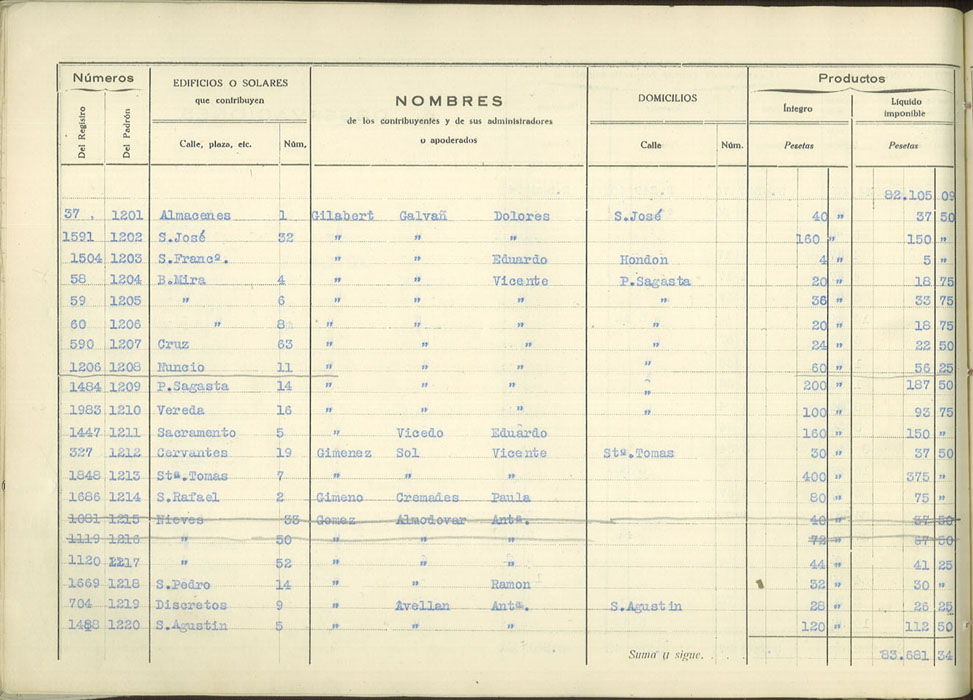 Números EDIFICIOS O SOLARES que contribuyen NOMBRES de los contribuyentes y de sus administradores o apoderados DOMICILIOS Productos
Del Registro Del Padrón Calle, plaza, etc. Núm. Calle Núm. Íntegro Líquido imponible
Pesetas Pesetas
82.105 09
37 . 1201 Almacenes 1 Gilabert Galvañ Dolores S.José 40 " 37 50
1591 1202 S.José 32 " " " 160 " 150 "
1504 1203 S.Francª. " " Eduardo Hondon 4 " 5 "
58 1204 B.Mira 4 " " Vicente P.Sagasta 20 " 18 75
59 1205 " 6 " " " " 36 " 33 75
60 1206 " 8 " " " " 20 " 18 75
590 1207 Cruz 63 " " " " 24 " 22 50
1206 1208 Nuncio 11 " " " " 60 " 56 25
1484 1209 P.Sagasta 14 " " " " 200 " 187 50
1983 1210 Vereda 16 " " " " 100 " 93 75
1447 1211 Sacramento 5 " Vicedo Eduardo 160 " 150 "
327 1212 Cervantes 19 Gimenez Sol Vicente Stª.Tomas 30 " 37 50
1848 1213 Stª.Tomas 7 " " " 400 " 375 "
1686 1214 S.Rafael 2 Gimeno Cremades Paula 80 " 75 "
1081 1215 Nieves 33 Gomez Almodovar Antª. 40 " 37 50
1119 1216 " 50 " " " 72 " 67 50
1120 1217 " 52 " " " 44 " 41 25
1669 1218 S.Pedro 14 " " Ramon 32 " 30 "
704 1219 Discretos 9 " Avellan Antª. S.Agustin 28 " 26 25
1488 1220 S.Agustin 5 " " " 120 " 112 50
Suma y sigue. 83.681 34